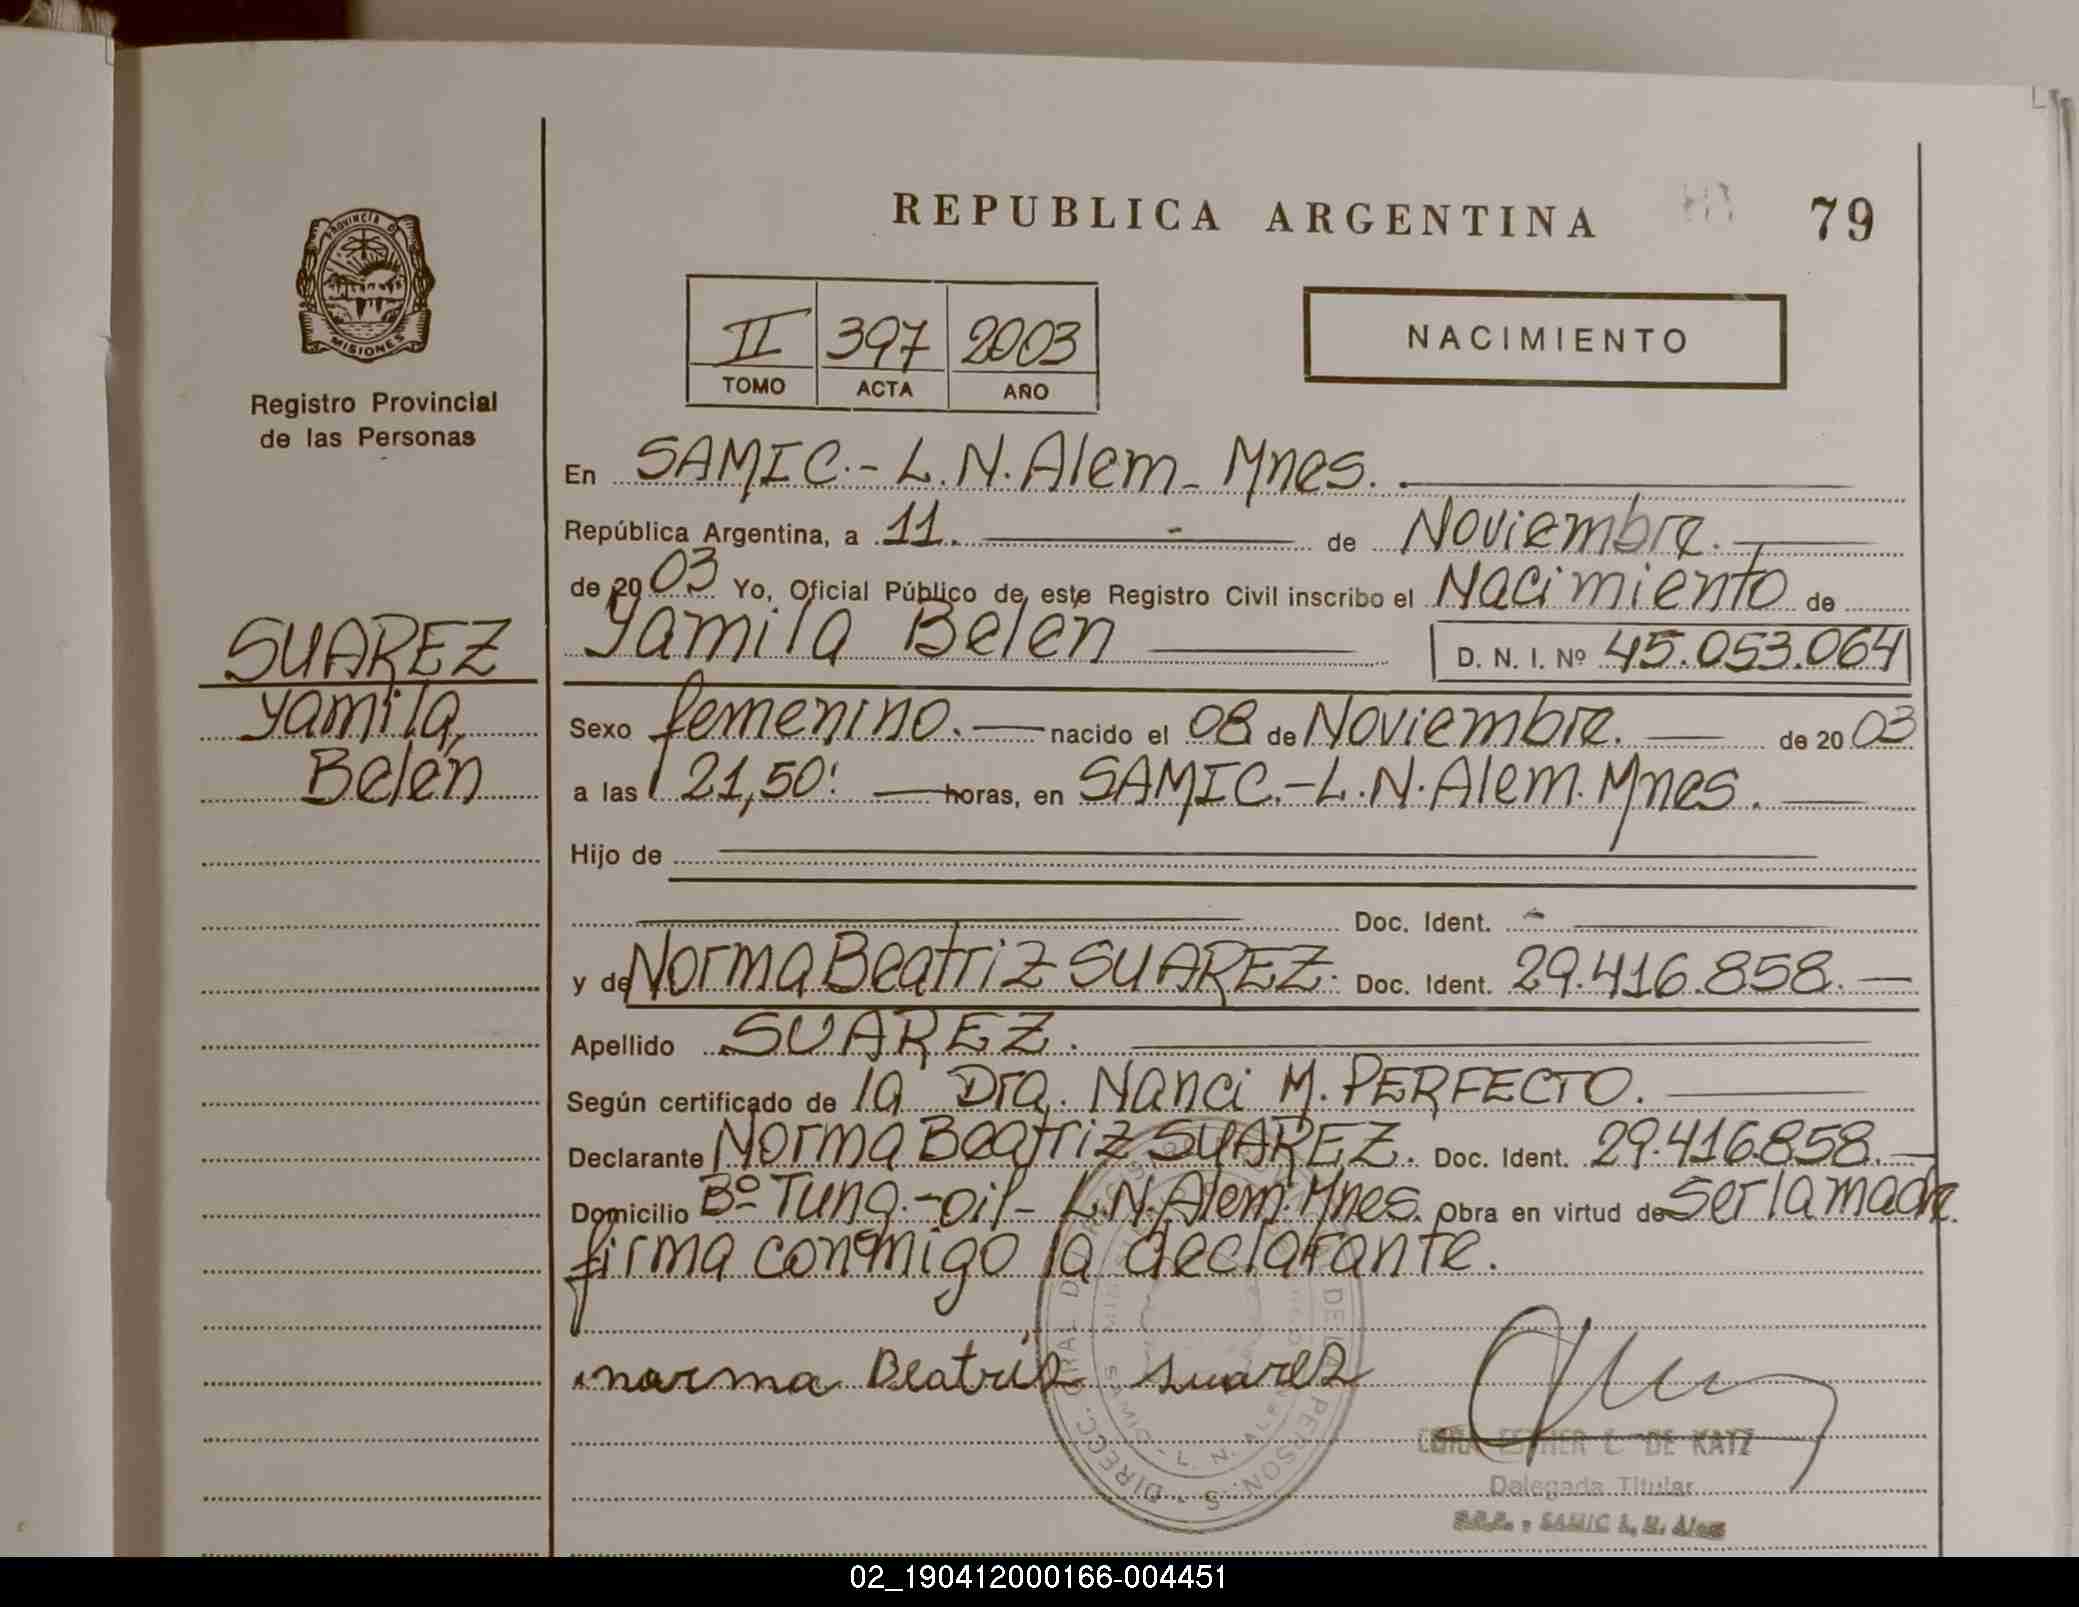 REPUBLICA ARGENTINA
79
PROVINCIA D
MISIONES
Registro Provincial
de las Personas
II 397 2003
TOMO ACTA AÑO
NACIMIENTO
En SAMIC.- L.N. Alem - Mnes.
República Argentina, a 11. de Noviembre.
de 2003 Yo, Oficial Público de este Registro Civil inscribo el Nacimiento de
Yamila Belén D. N. I. Nº 45.053.064
SUAREZ
Yamila,
Belén
Sexo femenino. nacido el 08 de Noviembre. de 2003
a las 21,50! horas, en SAMIC.-L.N. Alem. Mnes.
Hijo de
Doc. Ident. -
y de Norma Beatriz SUAREZ. Doc. Ident. 29.416.858.
Apellido SUAREZ.
Según certificado de la Dra. Nanci M. PERFECTO.
Declarante Norma Beatriz SUAREZ. Doc. Ident. 29.416.858.
Domicilio Bº Tung.-oil- L.N. Alem. Mnes. Obra en virtud de ser la madre.
firma conmigo la declarante.
norma Beatriz Suarez
ESTHER DE KATZ
Delegada Titular
SAMIC L. N. Alem
02_190412000166-004451